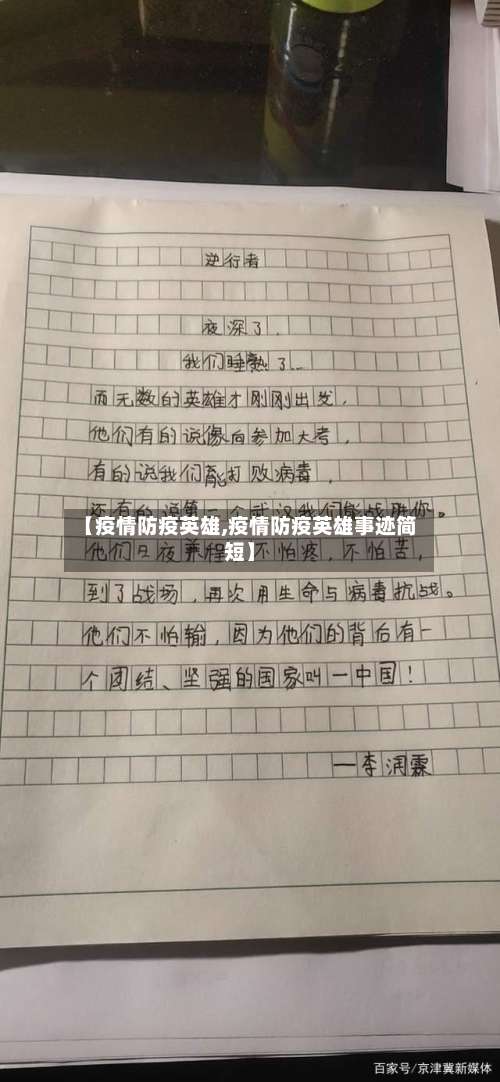 逆行者
夜深了,
我们睡熟了…
而无数的英雄才刚刚出发,
他们有的说像向参加大考,
有的说我们能打败病毒,
还有的说第一个武汉我们能战胜你。
【疫情防疫英雄,疫情防疫英雄事迹简
短】
他们日夜兼程,不怕疼,不怕苦,
到了战场,再次用生命与病毒抗战。
他们不怕输,因为他们的背后有一
个团结、坚强的国家叫一中国!
一李润霖
百家号/京津冀新媒体